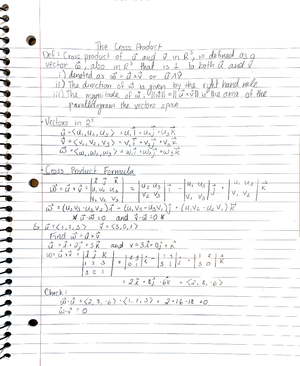 The Cross Product
Def: Cross product of u⃗ and v⃗ in R³, is defined as a
vector w⃗, also in R³ that is ⊥ to both u⃗ and v⃗
i) denoted as w⃗ = u⃗×v⃗ or u⃗∧v⃗
ii) The direction of w⃗ is given by the right hand rule
iii) The magnitude of w⃗, ||w⃗|| = ||u⃗×v⃗|| is the area of the
parallelogram the vectors span
Vectors in R³
u⃗ = <u₁, u₂, u₃> = u₁i⃗ + u₂j⃗ + u₃k⃗
v⃗ = <v₁, v₂, v₃> = v₁i⃗ + v₂j⃗ + v₃k⃗
w⃗ = <w₁, w₂, w₃> = w₁i⃗ + w₂j⃗ + w₃k⃗
Cross Product Formula
w⃗ = u⃗×v⃗ = |i⃗ j⃗ k⃗; u₁ u₂ u₃; v₁ v₂ v₃| = |u₂ u₃; v₂ v₃| i⃗ - |u₁ u₃; v₁ v₃| j⃗ + |u₁ u₂; v₁ v₂| k⃗
w⃗ = (u₂v₃-u₃v₂)i⃗ - (u₁v₃-u₃v₁)j⃗ + (u₁v₂-u₂v₁)k⃗
* u⃗·w⃗ = 0 and v⃗·w⃗ = 0 *
Ex u⃗ = <1, 2, 3> v⃗ = <3, 0, 1>
Find w⃗ = u⃗×v⃗
u⃗ = i⃗ + 2j⃗ + 3k⃗ and v = 3i⃗ + 0j⃗ + k⃗
w = u⃗×v⃗ = |i⃗ j⃗ k⃗; 1 2 3; 3 0 1| = |2 3; 0 1| i⃗ - |1 3; 3 1| j⃗ + |1 2; 3 0| k⃗
= 2i⃗ + 8j⃗ - 6k⃗ = <2, 8, -6>
Check:
w⃗·u⃗ = <2, 8, -6> · <1, 2, 3> = 2+16-18 = 0
w⃗·v⃗ = 0